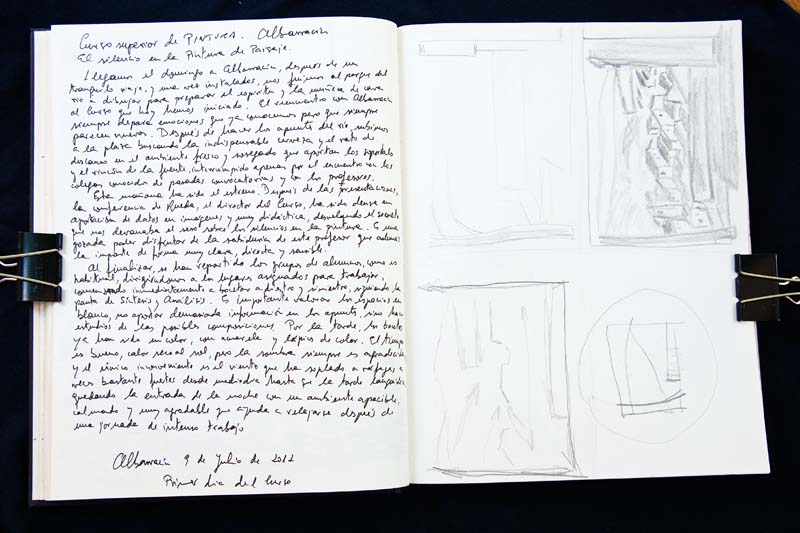 Curso superior de PINTURA. Albarracín
El silencio en la Pintura de Paisaje.
Llegamos el domingo a Albarracín, después de un
tranquilo viaje, y una vez instalados, nos fuimos al parque del
río a dibujar para preparar el espíritu y la muñeca de cara
al Curso que hoy hemos iniciado. El reencuentro con Albarracín
siempre depara emociones que ya conocemos pero que siempre
parecen nuevas. Después de hacer los apuntes del río, subimos
a la plaza buscando la indispensable cerveza y el rato de
descanso en el ambiente fresco y sosegado que aportan los soportales
y el rincón de la fuente, interrumpido apenas por el encuentro con los
colegas conocidos de pasadas convocatorias y con los profesores.
Esta mañana ha sido el estreno. Después de las presentaciones,
la conferencia de Rueda, el director del Curso, ha sido densa en
aportación de datos en imágenes y muy didáctica, desvelando el secreto
que nos devanaba el seso sobre los silencios en la pintura. Es una
gozada poder disfrutar de la sabiduría de este profesor que además
la imparte de forma muy clara, directa y sensible.
Al finalizar, se han repartido los grupos de alumnos, como es
habitual, dirigiéndonos a los lugares asignados para trabajar,
comenzando inmediatamente a bocetar a diestro y siniestro, siguiendo la
pauta de Síntesis y Análisis. Es importante valorar los espacios en
blanco, no aportar demasiada información en los apuntes, sino hacer
estudios de las posibles composiciones. Por la tarde, los bocetos
ya han sido en color, con acuarela y lápices de color. El tiempo
es bueno, calor seco al sol, pero la sombra siempre es agradecida
y el único inconveniente es el viento que ha soplado a ráfagas a
veces bastante fuertes desde mediodía hasta que la tarde
quedando la entrada de la noche con un ambiente apacible,
calmado y muy agradable que ayuda a relajarse después de
una jornada de intenso trabajo
Albarracín 9 de Julio de 2012
Primer día del Curso